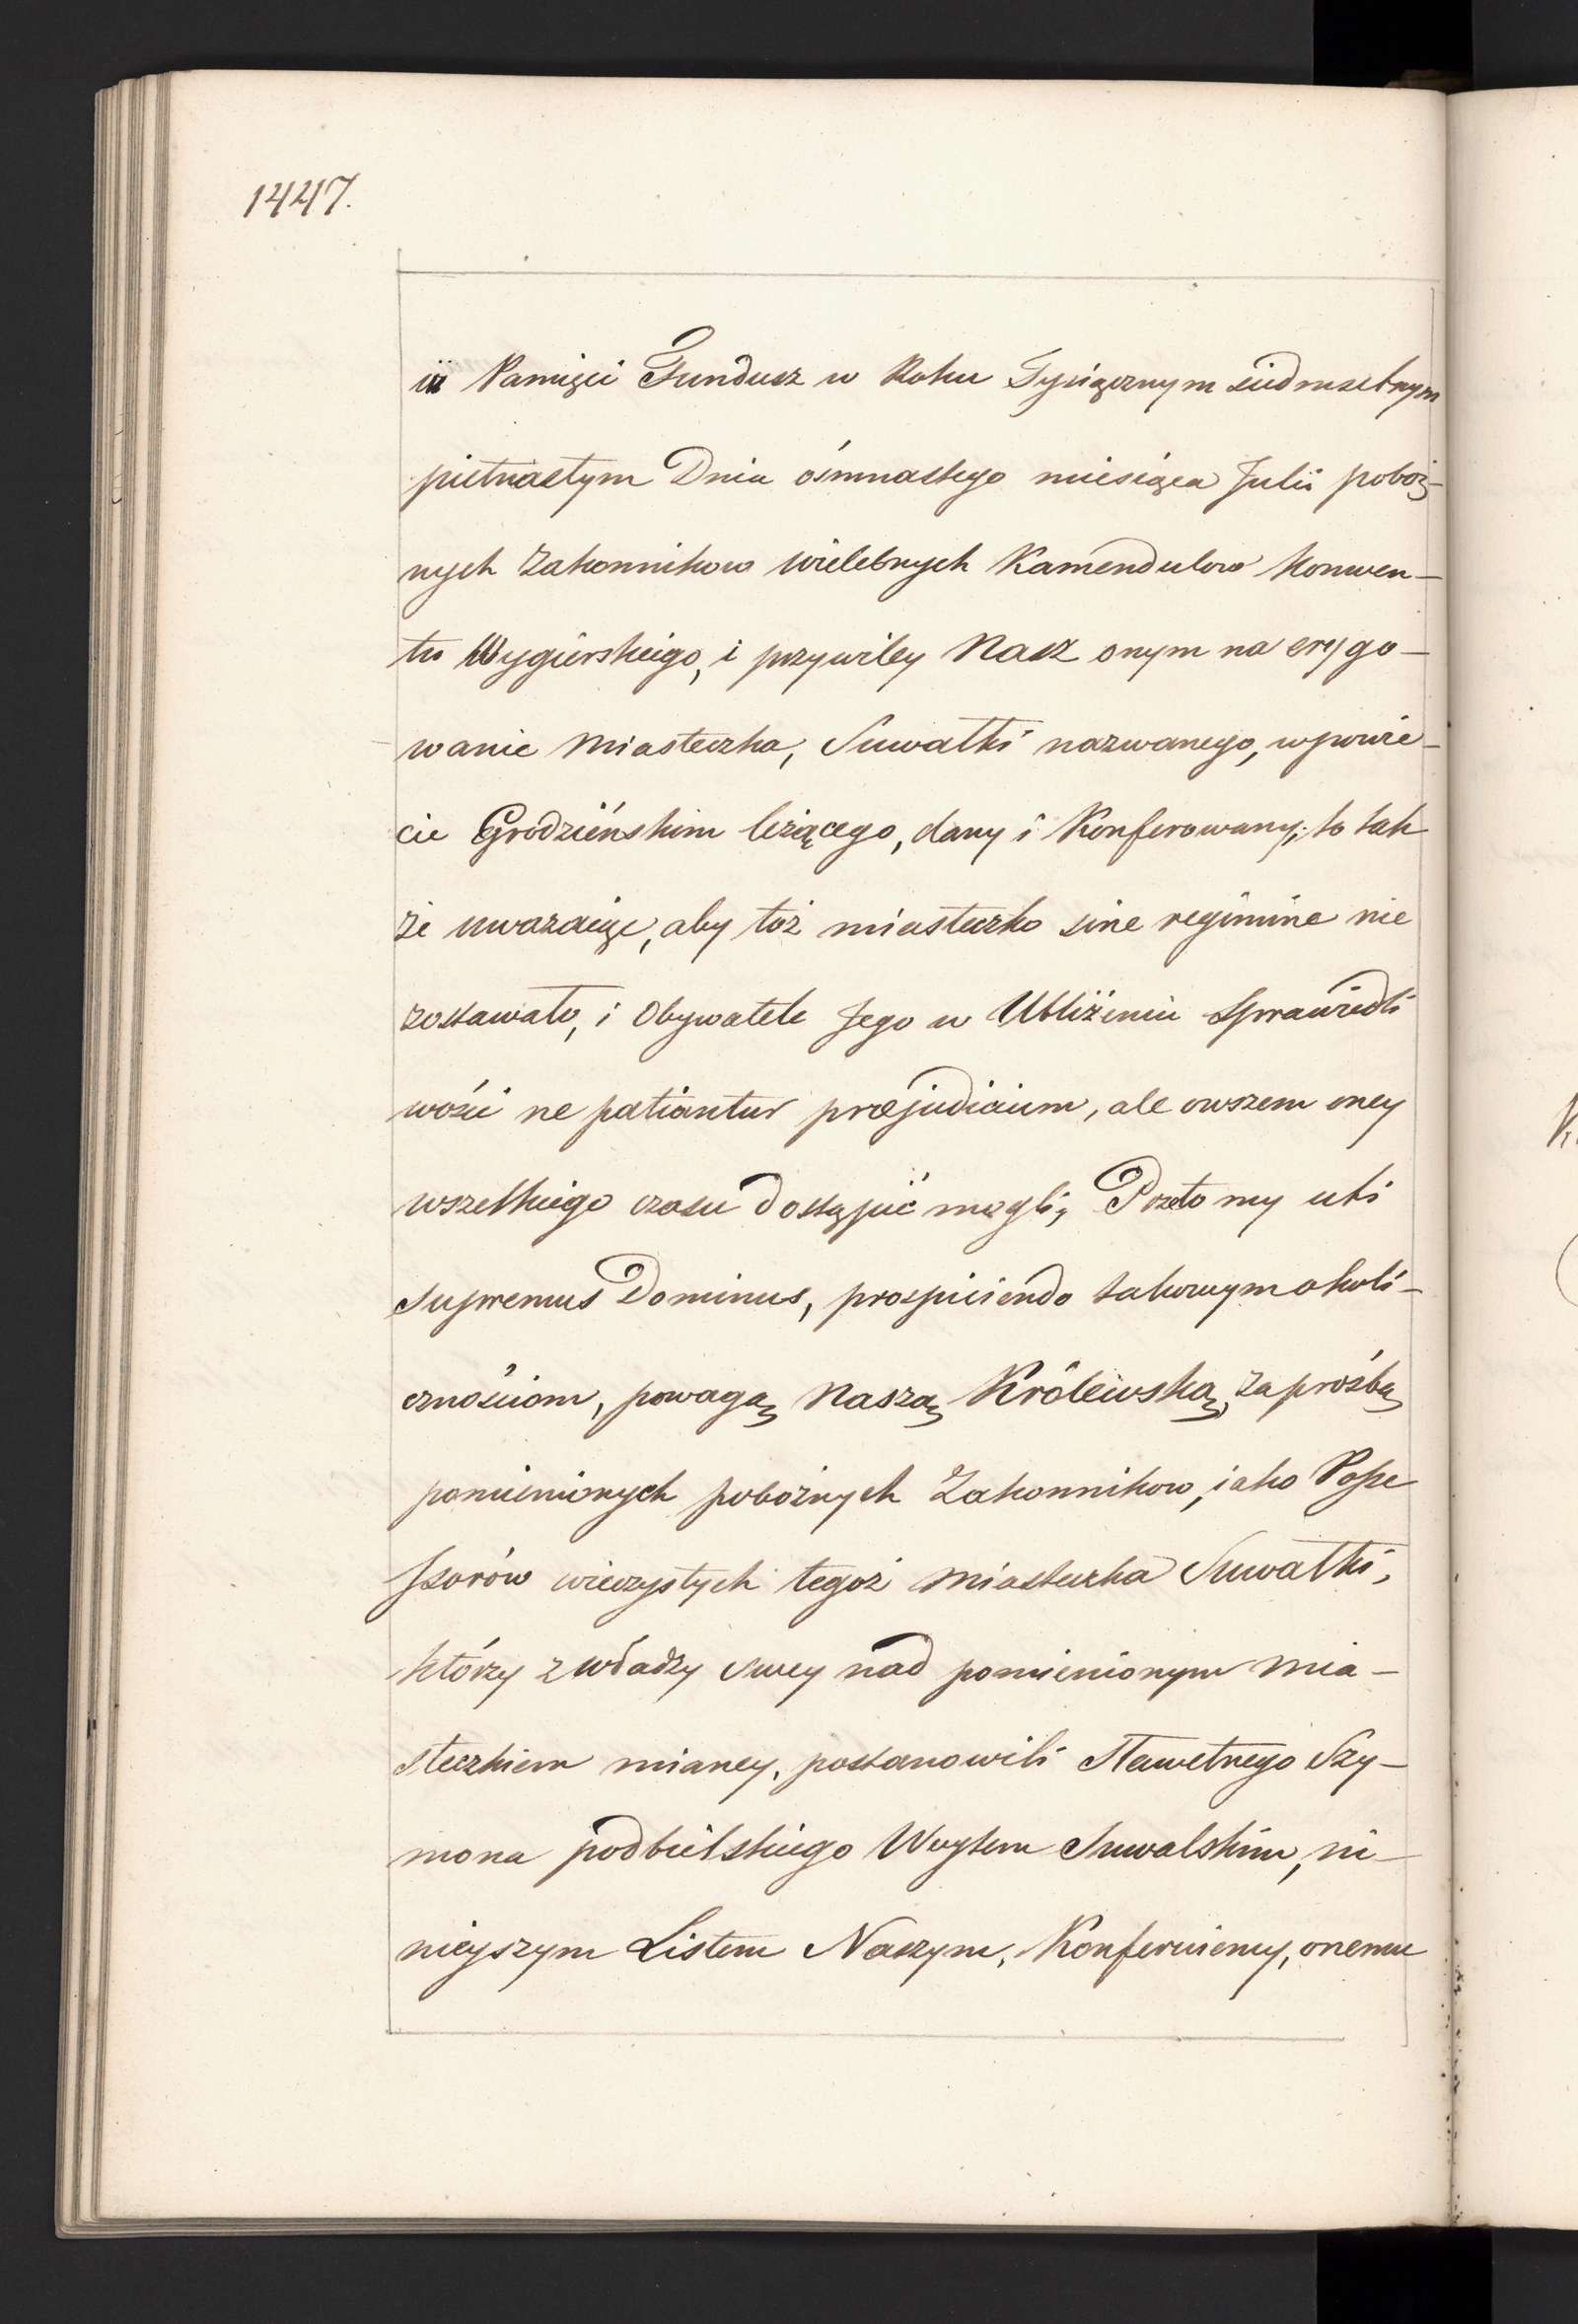 1447.
iu Pamięci Fundusz w Roku Tysiącznym siedmsetnym
pietnastym Dnia óśmnastego miesiąca Julii poboż-
nych Zakonnikow Wielebnych Kamendulow Konwen-
tu Wygierskiego, i przywiley Nasz onym na erygo-
wanie Miasteczka, Suwałki nazwanego, w powie-
cie Grodzieńskim leżącego, dany i Konferowany; to tak
że uwazaięc, aby toż miasteczko sine regimine nie
zostawało, i Obywatele Jego w Ubliżeniu Sprawiedli
wości ne patiantur præjudicium, ale owszem oney
wszelkiego czasu dostąpić mogli; Przeto my uti
supremus Dominus, prospiciendo takowym okoli-
cznościom, powagą Naszą Królewską, za prośbą
pomienionych pobożnych Zakonnikow, iako Posse
ssorów wieczystych tegoż Miasteczka Suwałki,
którzy z władzy swey nad pomienionym Mia-
steczkiem mianey, postanowili Sławetnego Szy-
mona podbielskiego Woytem Suwalskim, ni-
nieyszym Listem Naszym, Konferuiemy, onemu